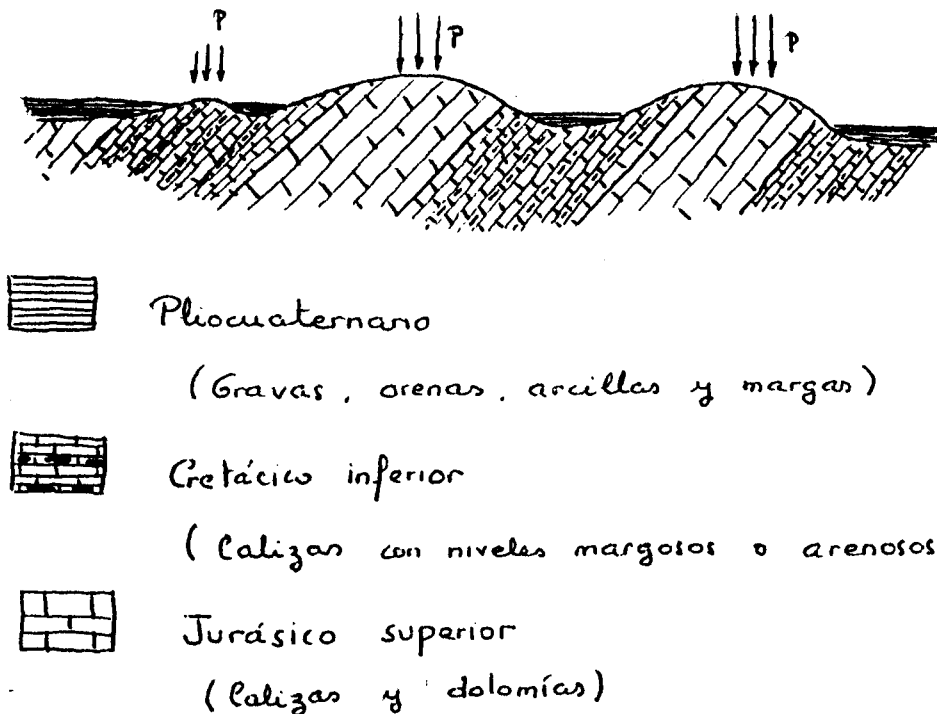 P
P
P
Pliocuaternario
(Gravas, arenas, arcillas y margas)
Cretácico inferior
(Calizas con niveles margosos o arenosos
Jurásico superior
(Calizas y dolomías)